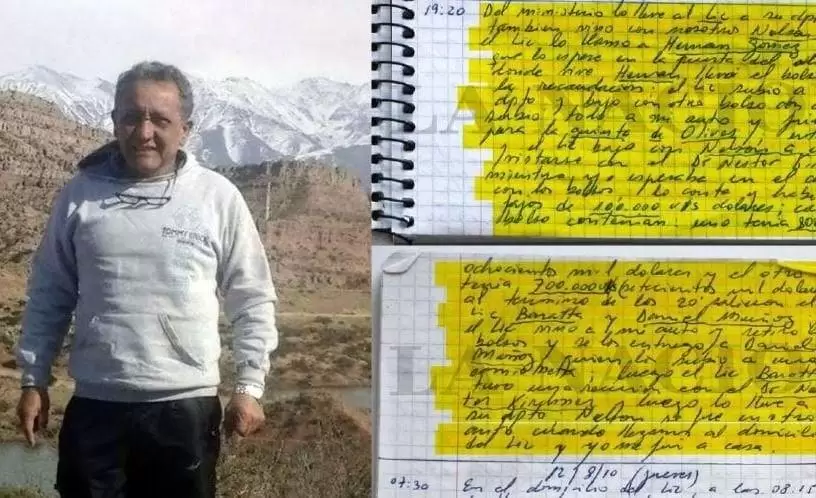 TOMMY
19:20 Del ministerio lo lleve al Lic a su dpto
tambien vino con nosotros Nelson
el Lic lo llamo a Hernan Gomez
que lo espere en la puerta del
donde vive Hernan, llevó el bolso
la recaudacion, el Lic subió a
dpto y bajo con otro bolso
subió todo a mi auto y
para la quinta de Olivos,
y el Lic bajo con Nelson a
con el Dr Nestor
mientras yo esperaba en el
con los bolsos, lo conte y
fajos de 100.000 u$s dolares,
bolso contenian, uno tenia 800
LA NACION
ochociento mil dolares y el otro
tenia 700.000 u$s (setecientos mil
al termino de los 20' salieron el
Lic Baratta y Daniel Muñoz
el Lic vino a mi auto y retiro
bolsos y se los entrego a Daniel
Muñoz, quien lo subio a una
camioneta, luego el Lic Baratta
tuvo una reunion con el Dr Nes-
tor Kirchner, luego lo lleve a
su dpto Nelson se fue en otro
auto cuando llegamos al domicilio
del Lic y yo me fui a casa.
LA NACION
12/8/10 (jueves)
07:30 En el domicilio del Lic, a las 08:15